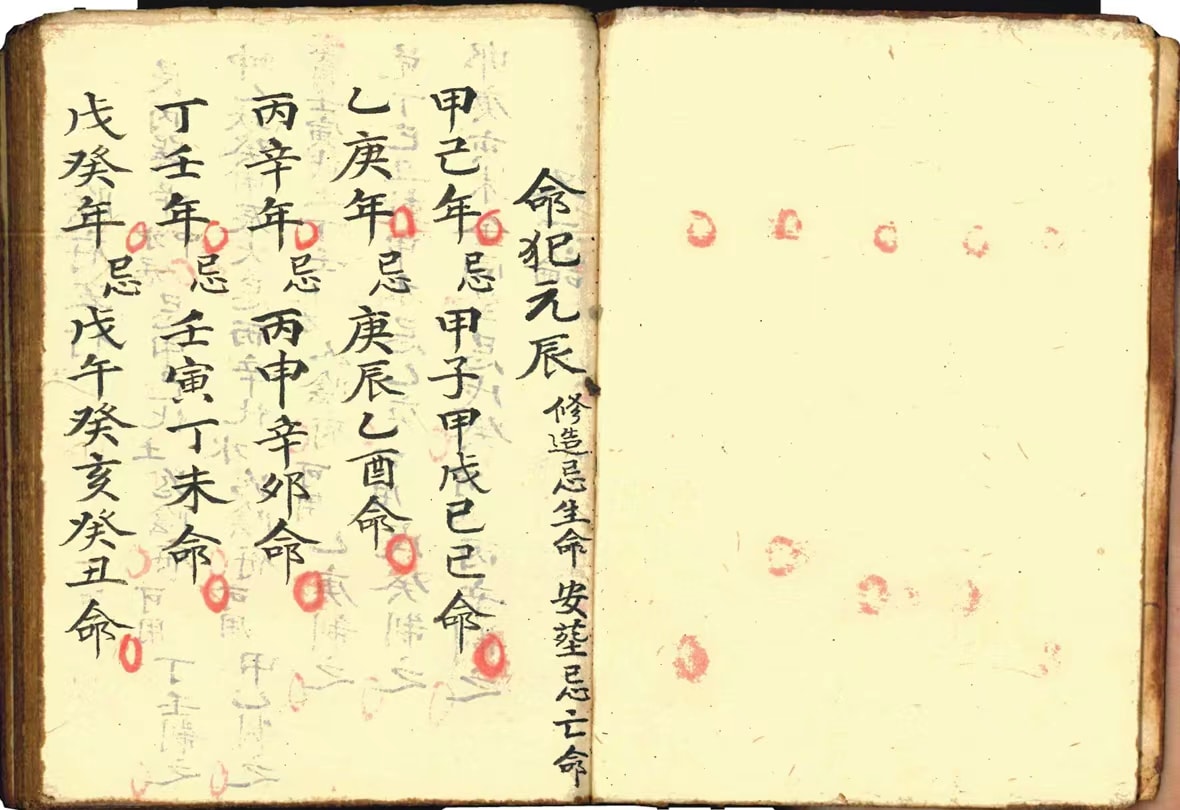 命犯元辰 修造忌生命 安塟忌亡命
甲己年忌甲子甲戌己巳命
乙庚年忌庚辰乙酉命
丙辛年忌丙申辛卯命
丁壬年忌壬寅丁未命
戊癸年忌戊午癸亥癸丑命